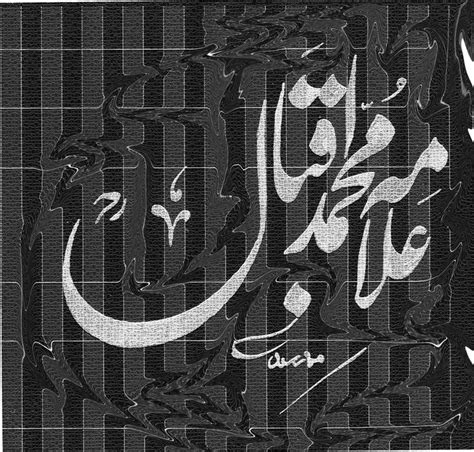 علامہ محمد اقبال